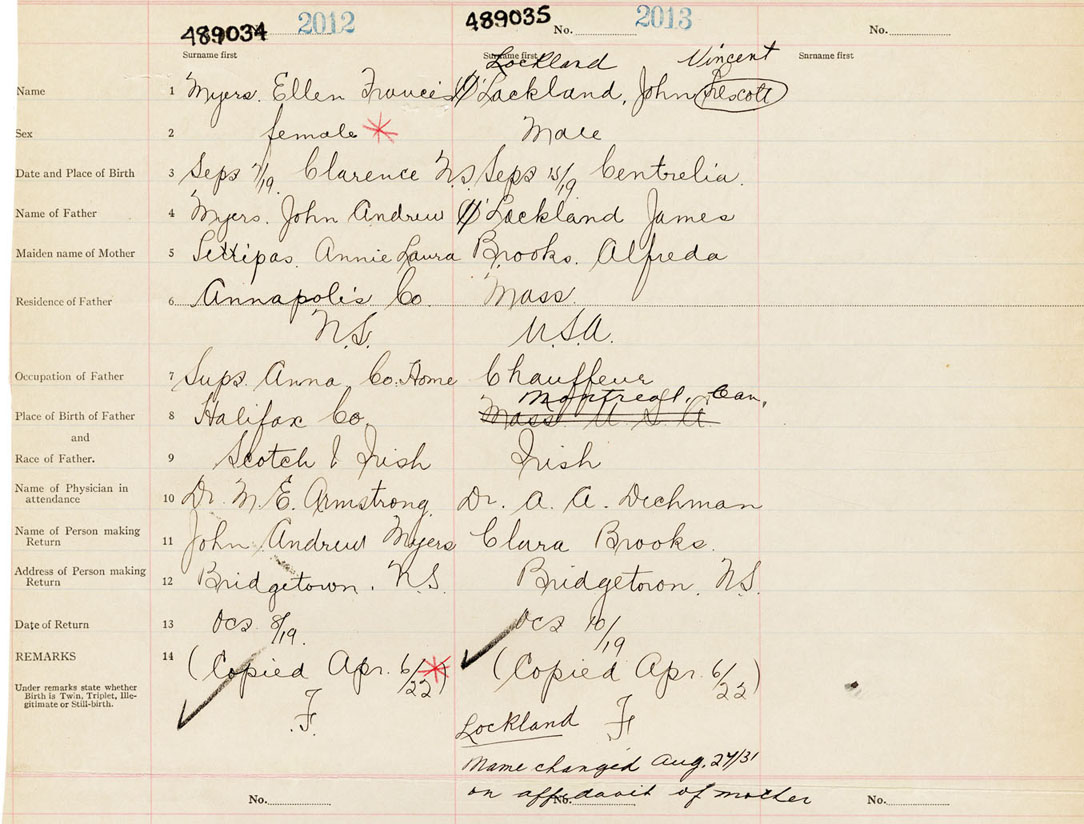 489034 2012
489035 No. 2013
No.
Surname first
Surname first
Surname first
Lockland Vincent
Name 1 Myers. Ellen Frances Lackland, John Prescott
Sex 2 female Male
Date and Place of Birth 3 Sept 7/19. Clarence N.S. Sept 15/19 Centrelia.
Name of Father 4 Myers. John Andrew Lackland James
Maiden name of Mother 5 Annie Laura Brooks. Alfreda
Residence of Father 6 Annapolis Co Mass.
N.S. U.S.A.
Occupation of Father 7 Supt. Anna. Co. Home Chauffeur
Montreal, Can,
Place of Birth of Father 8 Halifax Co. Mass U S A
and
Race of Father. 9 Scotch & Irish Irish
Name of Physician in
attendance 10 Dr. M. E. Armstrong. Dr. A. A. Dechman
Name of Person making
Return 11 John Andrew Myers Clara Brooks.
Address of Person making
Return 12 Bridgetown. N.S. Bridgetown. N.S.
Date of Return 13 Oct 8/19. Oct 10/19
REMARKS 14 (Copied Apr. 6/22) (Copied Apr. 6/22)
Under remarks state whether
Birth is Twin, Triplet, Ille-
gitimate or Still-birth.
F. F
Lockland
Name changed Aug. 27/31
on affidavit of mother
No. No. No.